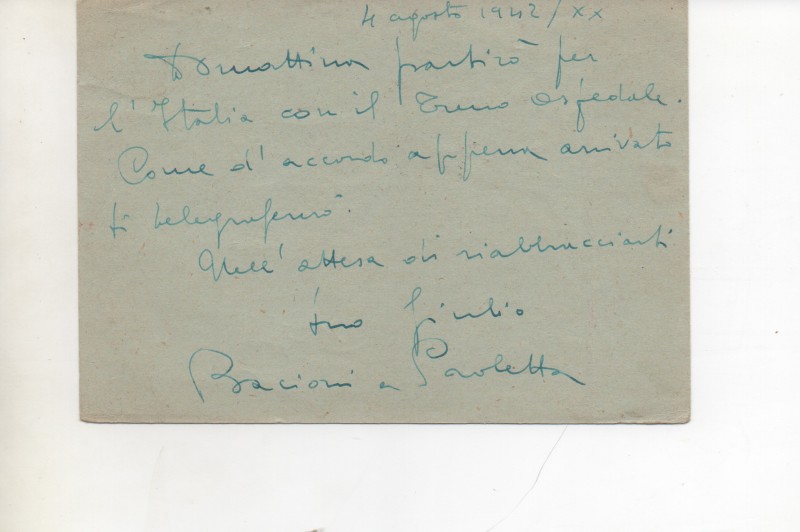 4 agosto 1942/XX
Domattina partirò per
l'Italia con il Treno Ospedale.
Come d'accordo appena arrivato
ti telegraferò.
Nell'attesa di riabbracciarti
tuo Giulio
Bacioni a Paoletta